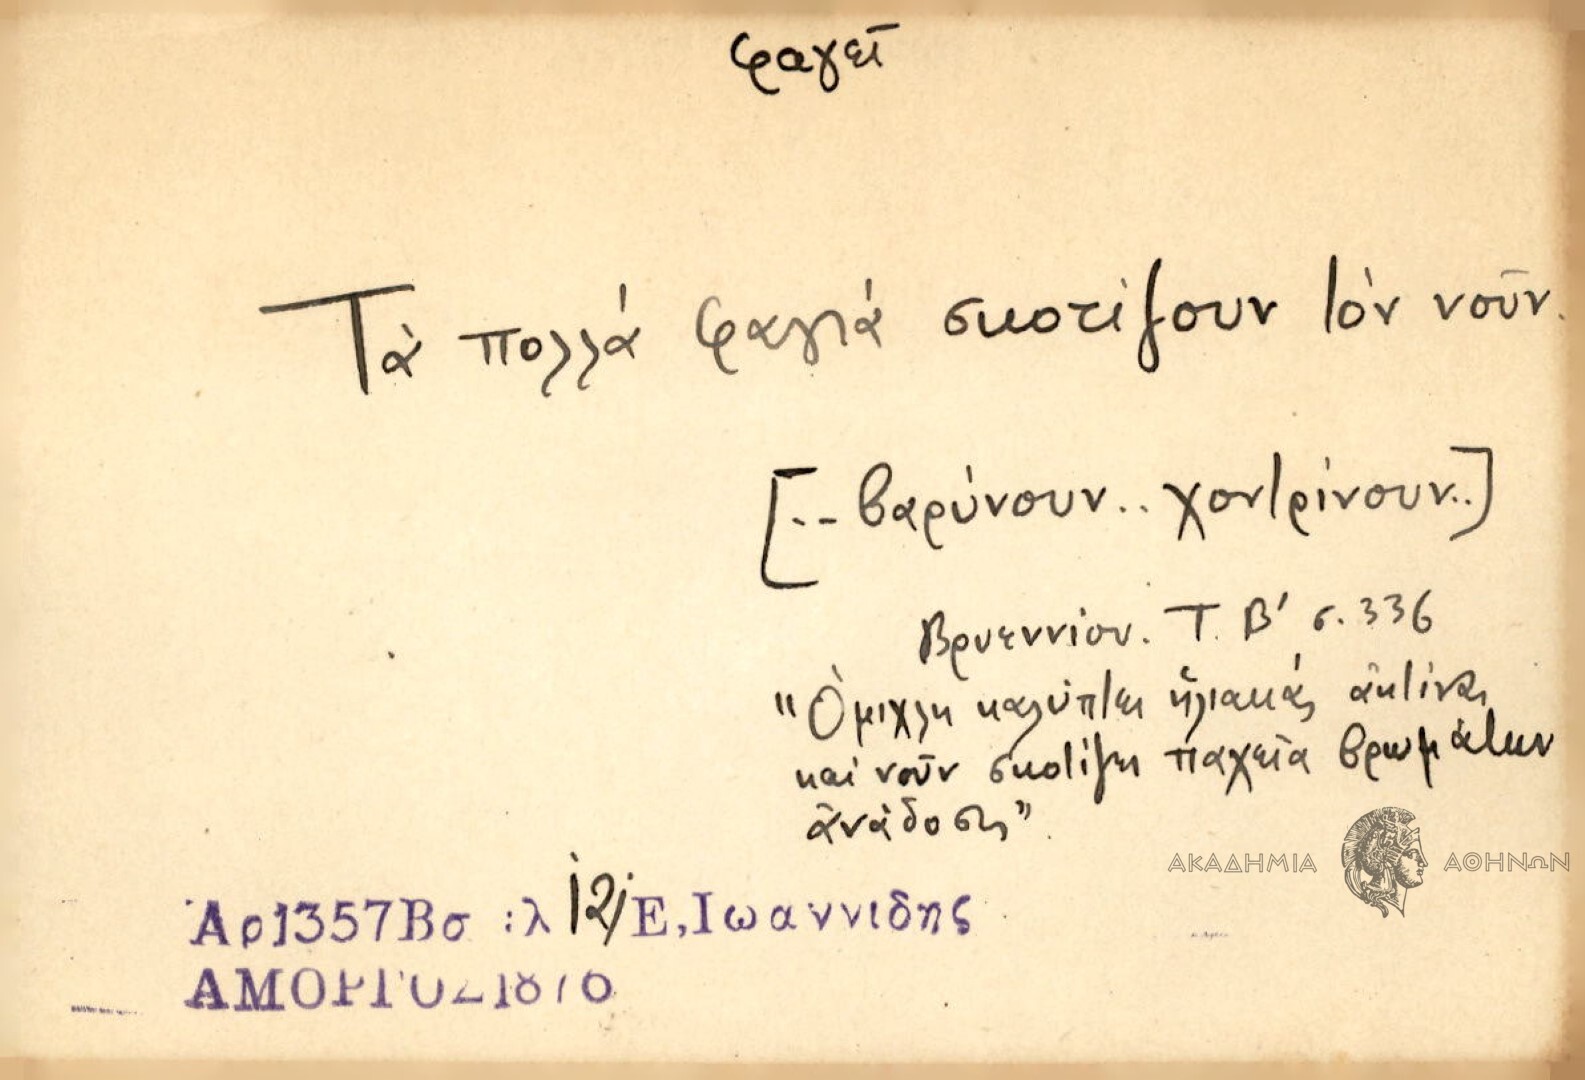 φαγεῖ
Τὰ πολλά φαγιά σκοτίζουν τόν νοῦν.
[.-- βαρύνουν.. χοντρίνουν..]
Βρυεννίου. Τ. Β' σ. 336
"Ὀμιχλη καλύπτει ἡλιακάς ἀκτίνας
καί νοῦν σκοτίζει παχεῖα βρωμάτων
ἀνάδοσις"
ΑΚΑΔΗΜΙΑ ΑΘΗΝΩΝ
Ἀρ1357Βσ :λ 12/ Ε,Ιωαννιδης
ΑΜΟΡΓΟΣ1876